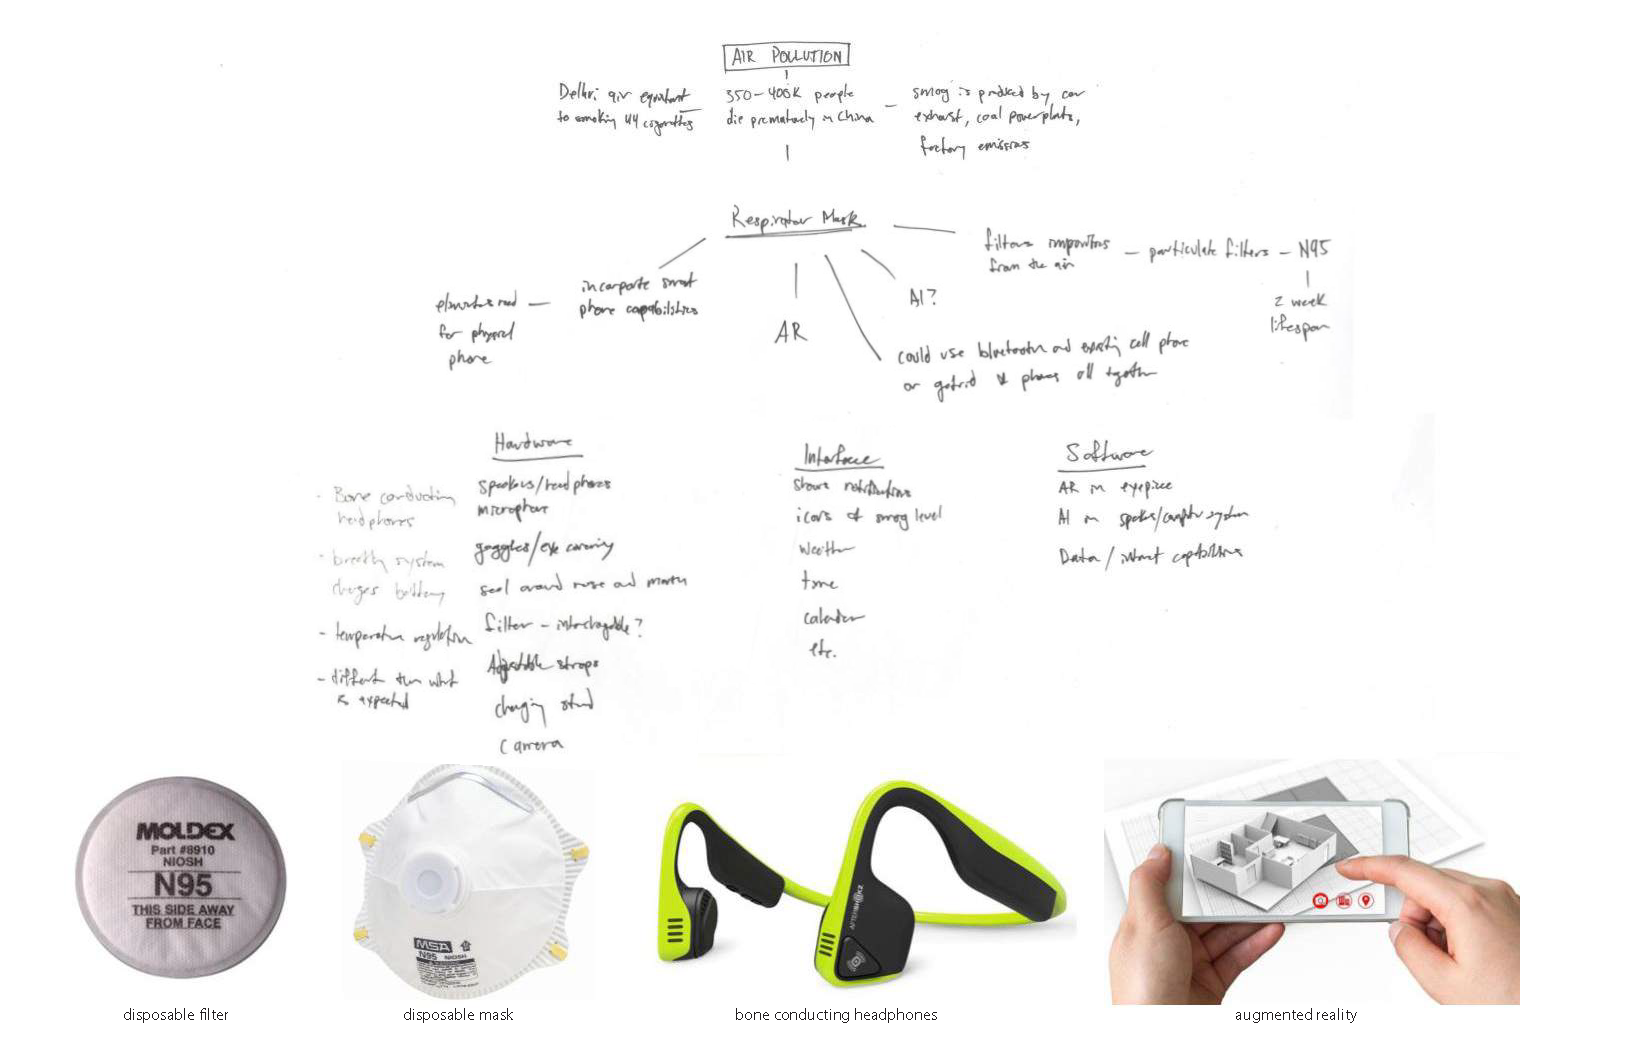 AIR POLLUTION
Delhi air equivalent
to smoking 44 cigarettes
350-400K people
die prematurely in China
smog is produced by car
exhaust, coal power plants,
factory emissions
Respirator Mask
filters impurities
from the air
particulate filters - N95
2 week
lifespan
incorporate smart
phone capabilities
eliminates need
for physical
phone
AR
AI?
could use bluetooth and existing cell phone
or get rid of phones all together
Hardware
speakers/headphones
microphone
goggles/eye covering
seal around nose and mouth
filter - interchangable?
Adjustable straps
charging stand
camera
- Bone conducting
headphones
- breathing system
charges battery
- temperature regulation
- different than what
is expected
Interface
shows notifications
icons of smog level
weather
time
calendar
etc.
Software
AR in eyepiece
AI in speaker/computer system
Data/internet capabilities
MOLDEX
Part #8910
NIOSH
N95
THIS SIDE AWAY
FROM FACE
MSA
N95 NIOSH
AFTERSHOKZ
disposable filter
disposable mask
bone conducting headphones
augmented reality